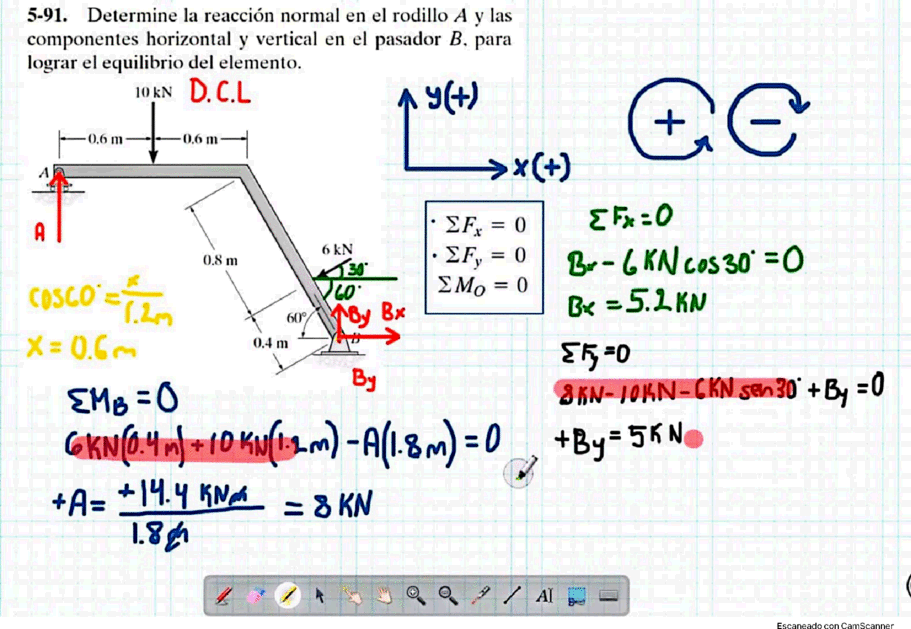 5-91. Determine la reacción normal en el rodillo A y las
componentes horizontal y vertical en el pasador B, para
lograr el equilibrio del elemento.
10 kN D.C.L
y(+)
+ −
0.6 m 0.6 m
x(+)
A
A
0.8 m
6 kN
30°
60°
60°
By Bx
B
0.4 m
By
· ΣFx = 0
· ΣFy = 0
ΣMO = 0
ΣFx = 0
Bx - 6KN cos30° = 0
Bx = 5.2KN
ΣFy = 0
8KN - 10KN - 6KN sen30° + By = 0
+By = 5KN
cos60° = x/1.2m
x = 0.6m
ΣMB = 0
6KN(0.4m) + 10KN(1.2m) - A(1.8m) = 0
+A = +14.4 KNm / 1.8m = 8KN
AI
Escaneado con CamScanner